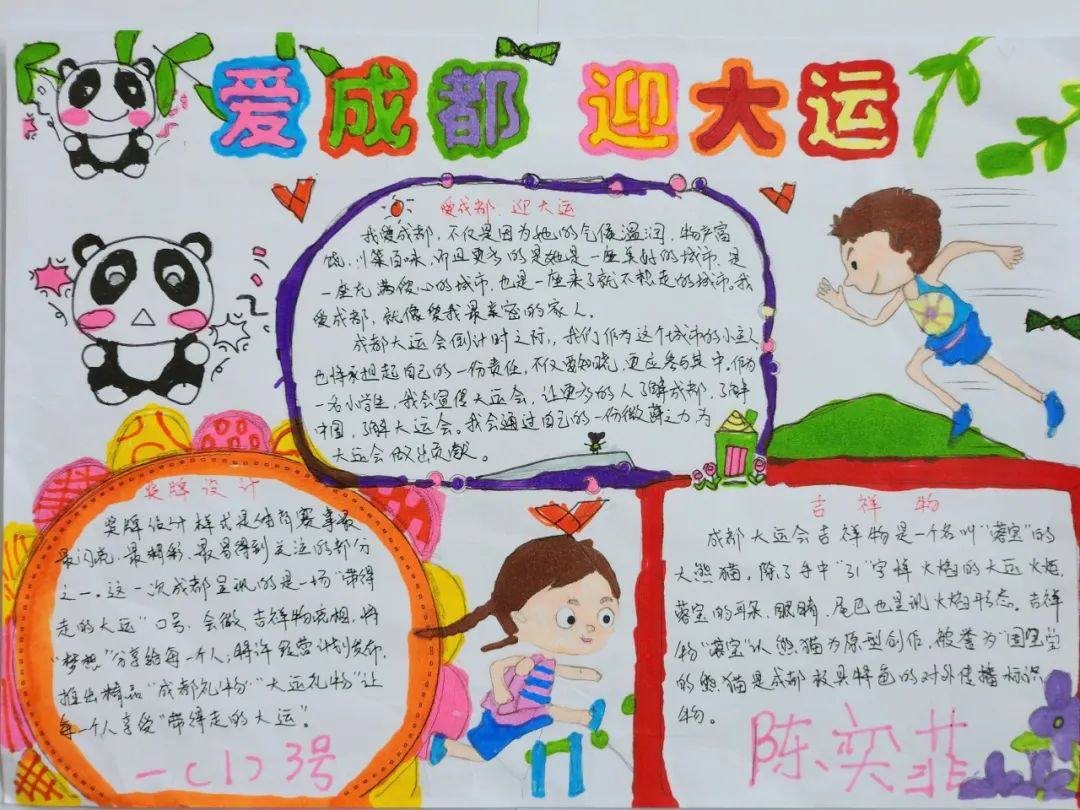 爱成都 迎大运
爱成都 迎大运
我爱成都，不仅是因为她的气候温润，物产富
饶，川菜百味，而且更多的是她是一座美好的城市，是
一座充满爱心的城市，也是一座来了就不想走的城市。我
爱成都，就像爱我最亲密的家人。
成都大运会倒计时之际，我们作为这个城市的小主人
也将承担起自己的一份责任，不仅要知晓，更应参与其中。作为
一名小学生，我会宣传大运会，让更多的人了解成都，了解
中国，了解大运会。我会通过自己的一份微薄之力为
大运会做出贡献。
奖牌设计
奖牌设计样式是体育赛事最
最闪亮、最精彩、最易得到关注的部分
之一。这一次成都呈现的是一场“带得
走的大运”口号，会徽、吉祥物亮相，将
“梦想”分享给每一个人；特许经营计划发布，
推出精品“成都礼物”“大运礼物”让
每一个人享受“带得走的大运”。
一（1）3号
吉祥物
成都大运会吉祥物是一个名叫“蓉宝”的
大熊猫，除了手中“31”字样火焰的大运火炬，
蓉宝的耳朵、眼睛、尾巴也呈现火焰形态。吉祥
物“蓉宝”以熊猫为原型创作，被誉为“国宝”
的熊猫是成都极具特色的对外传播标识
物。
陈奕菲